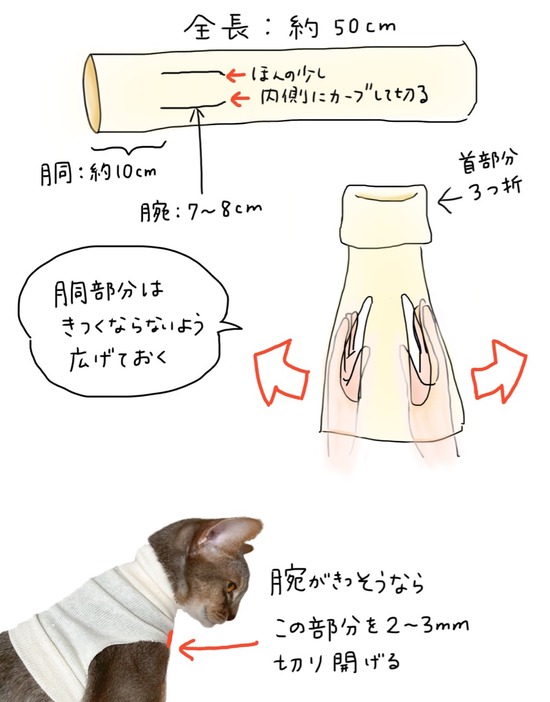 全長：約50cm
ほんの少し
内側にカーブして切る
胴：約10cm
腕：7〜8cm
首部分
3つ折
胴部分は
きつくならないよう
広げておく
腕がきっそうなら
この部分を2〜3mm
切り開げる